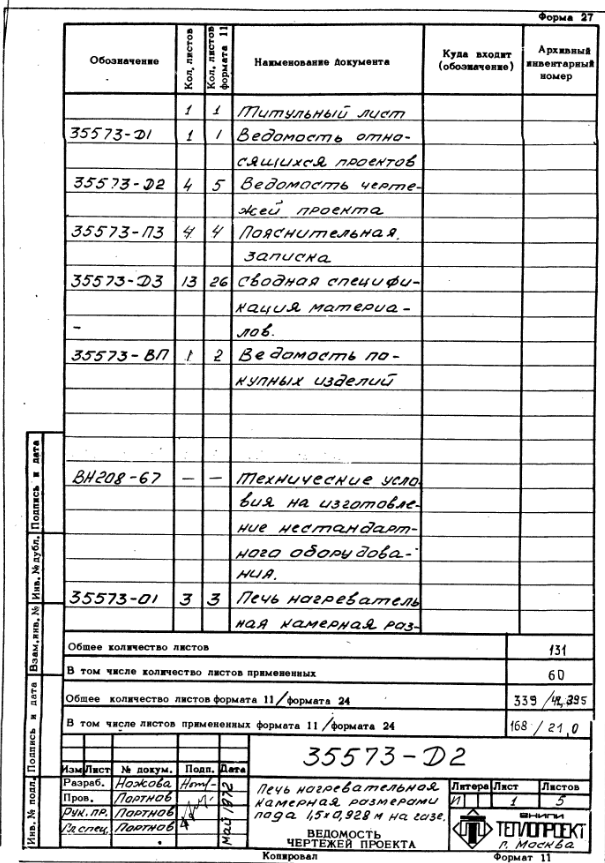 Форма 27
Обозначение Кол. листов Кол. листов формата 11 Наименование Документа Куда входит (обозначение) Архивный инвентарный номер
1 1 Титульный лист
35573-Д1 1 1 Ведомость отно-
сящихся проектов
35573-Д2 4 5 Ведомость черте-
жей проекта
35573-ПЗ 4 4 Пояснительная
записка
35573-Д3 13 26 Сводная специфи-
кация материа-
- лов.
35573-ВП 1 2 Ведомость по-
купных изделий
ВН208-67 — — Технические усло
вия на изготовле-
ние нестандарт-
ного оборудова-
ния.
35573-01 3 3 Печь нагреватель
ная камерная раз-
Общее количество листов 131
В том числе количество листов примененных 60
Общее количество листов формата 11/формата 24 339/42,395
В том числе листов примененных формата 11/формата 24 168/21,0
Инв. № подл. Подпись и дата Взам. инв. № Инв. № дубл. Подпись и дата
35573-Д2
Изм Лист № докум. Подп. Дата
Разраб. Ножова
Пров. Портнов
Рук. пр. Портнов
Гл. спец. Портнов
май 1972
Печь нагревательная
камерная размерами
пода 1,5х0,928 м на газе.
ВЕДОМОСТЬ
ЧЕРТЕЖЕЙ ПРОЕКТА
Литера Лист Листов
И 1 5
ВНИПИ
ТЕПЛОПРОЕКТ
г. Москва
Копировал Формат 11